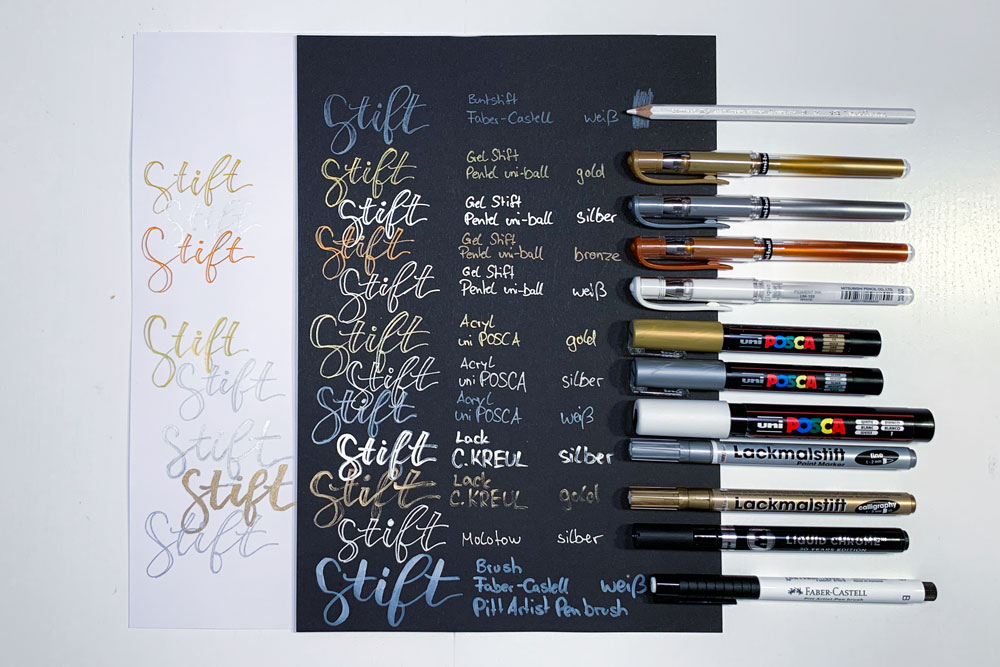 Stift Buntstift
Faber-Castell weiß
Stift Stift Gel Stift
Pentel uni-ball gold
Stift Gel Stift
Pentel uni-ball silber
Stift Stift Gel Stift
Pentel uni-ball bronze
Stift Gel Stift
Pentel uni-ball weiß
MITSUBISHI PENCIL CO., LTD.
Stift Stift Acryl
uni POSCA gold uni POSCA
Stift Stift Acryl
uni POSCA silber uni POSCA
Stift Acryl
uni POSCA weiß uni POSCA
Stift Stift Lack
C. KREUL silber Lackmalstift line
Paint Marker
Stift Stift Lack
C. KREUL gold Lackmalstift calligraphy
Stift Stift Molotow silber LIQUID CHROME
20 YEARS EDITION
Stift Brush
Faber-Castell weiß FABER-CASTELL B
Pitt Artist Pen brush Pitt Artist Pen brush